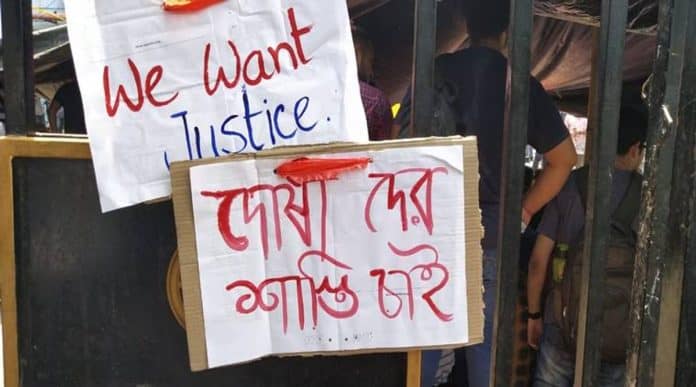 We Want
Justice.
দোষী দের
শাস্তি চাই